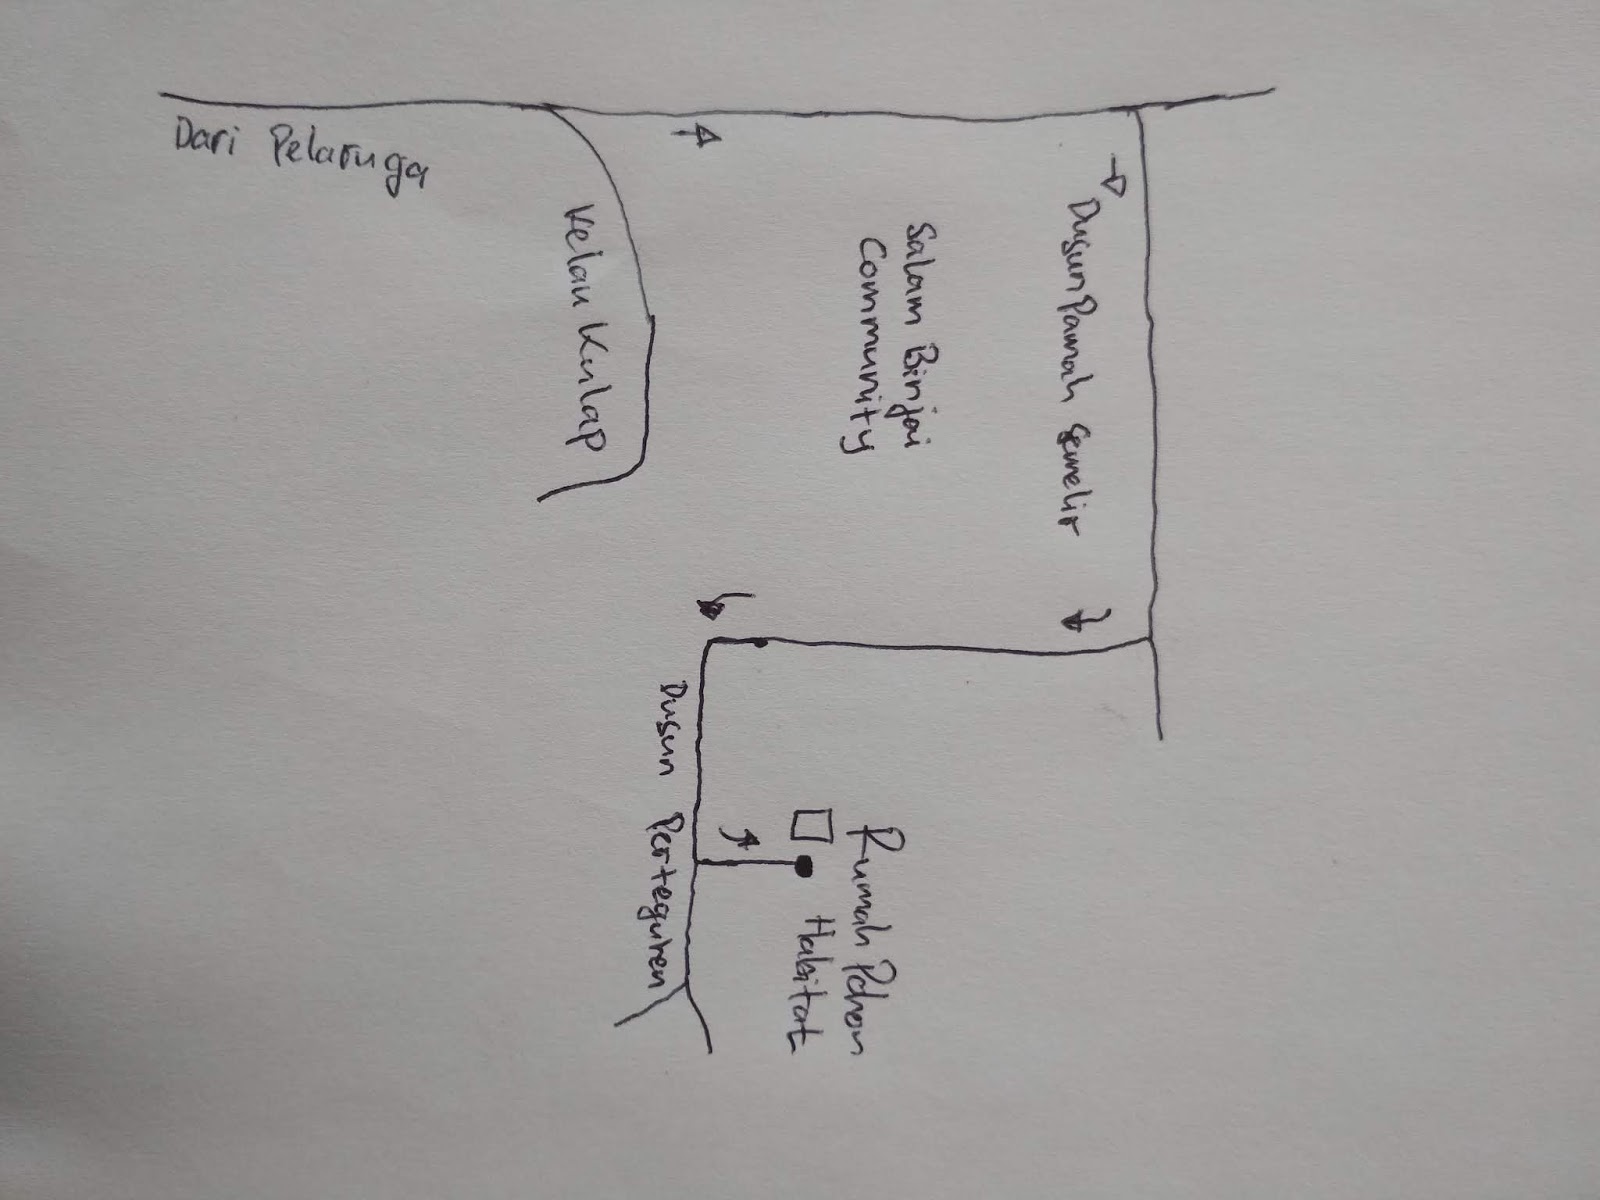 Dari Pelaruga
Kelau Kulap
Salam Binjai
Community
Dusun Pamah Semelir
Dusun Perteguhen
Rumah Pohon
Habitat